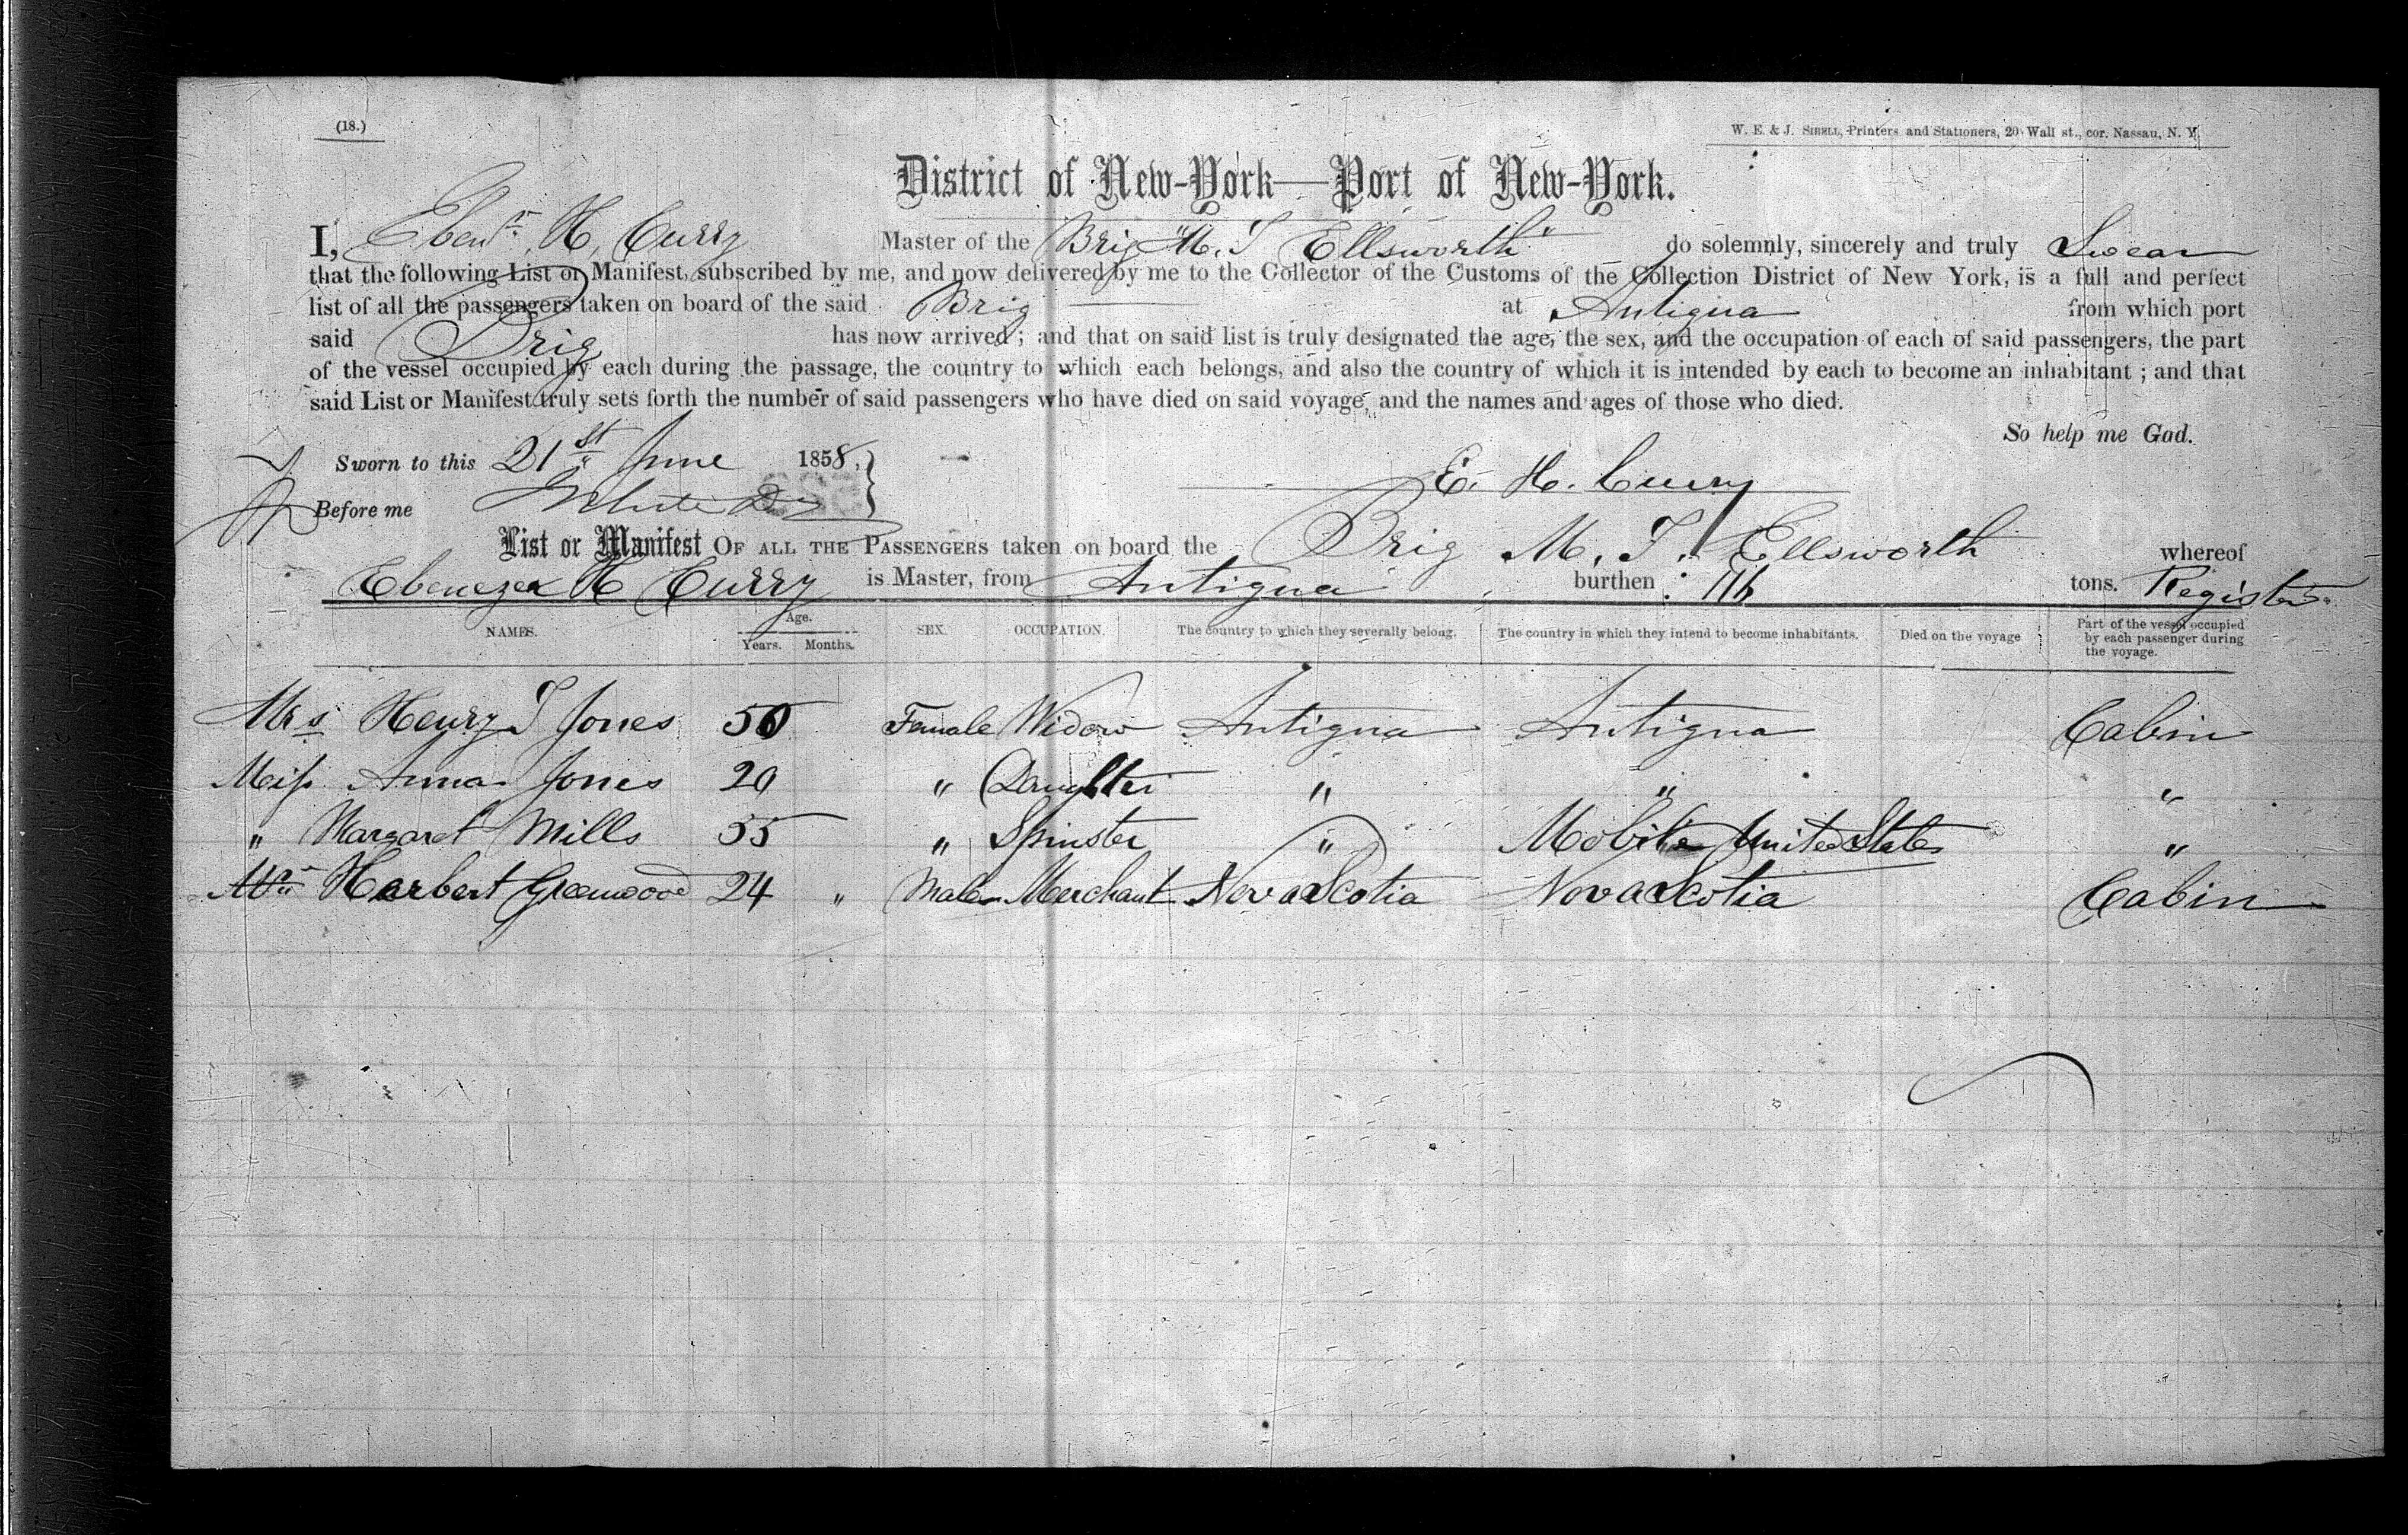 (18.)
W. E. & J. SIBELL, Printers and Stationers, 20 Wall st., cor. Nassau, N. Y.
District of New-York—Port of New-York.
I, Ebenr. H. Curry Master of the Brig "M. T Ellsworth" do solemnly, sincerely and truly Swear
that the following List or Manifest, subscribed by me, and now delivered by me to the Collector of the Customs of the Collection District of New York, is a full and perfect
list of all the passengers taken on board of the said Brig at Antigua from which port
said Brig has now arrived; and that on said list is truly designated the age, the sex, and the occupation of each of said passengers, the part
of the vessel occupied by each during the passage, the country to which each belongs, and also the country of which it is intended by each to become an inhabitant; and that
said List or Manifest truly sets forth the number of said passengers who have died on said voyage, and the names and ages of those who died.
So help me God.
Sworn to this 21st June 1858,
E. H. Curry
Before me
List or Manifest OF ALL THE PASSENGERS taken on board the Brig M. T. Ellsworth whereof
Ebenezer H Curry is Master, from Antigua burthen : 116 tons. Register
NAMES. Age. Years. Months. SEX. OCCUPATION. The country to which they severally belong. The country in which they intend to become inhabitants. Died on the voyage Part of the vessel occupied by each passenger during the voyage.
Mrs Henry T Jones 50 Female Widow Antigua Antigua Cabin
Miss Anna Jones 20 " Daughter " " "
" Margaret Mills 55 " Spinster " Mobile United States "
Mr Herbert Greenwood 24 " Male Merchant Nova Scotia Nova Scotia Cabin